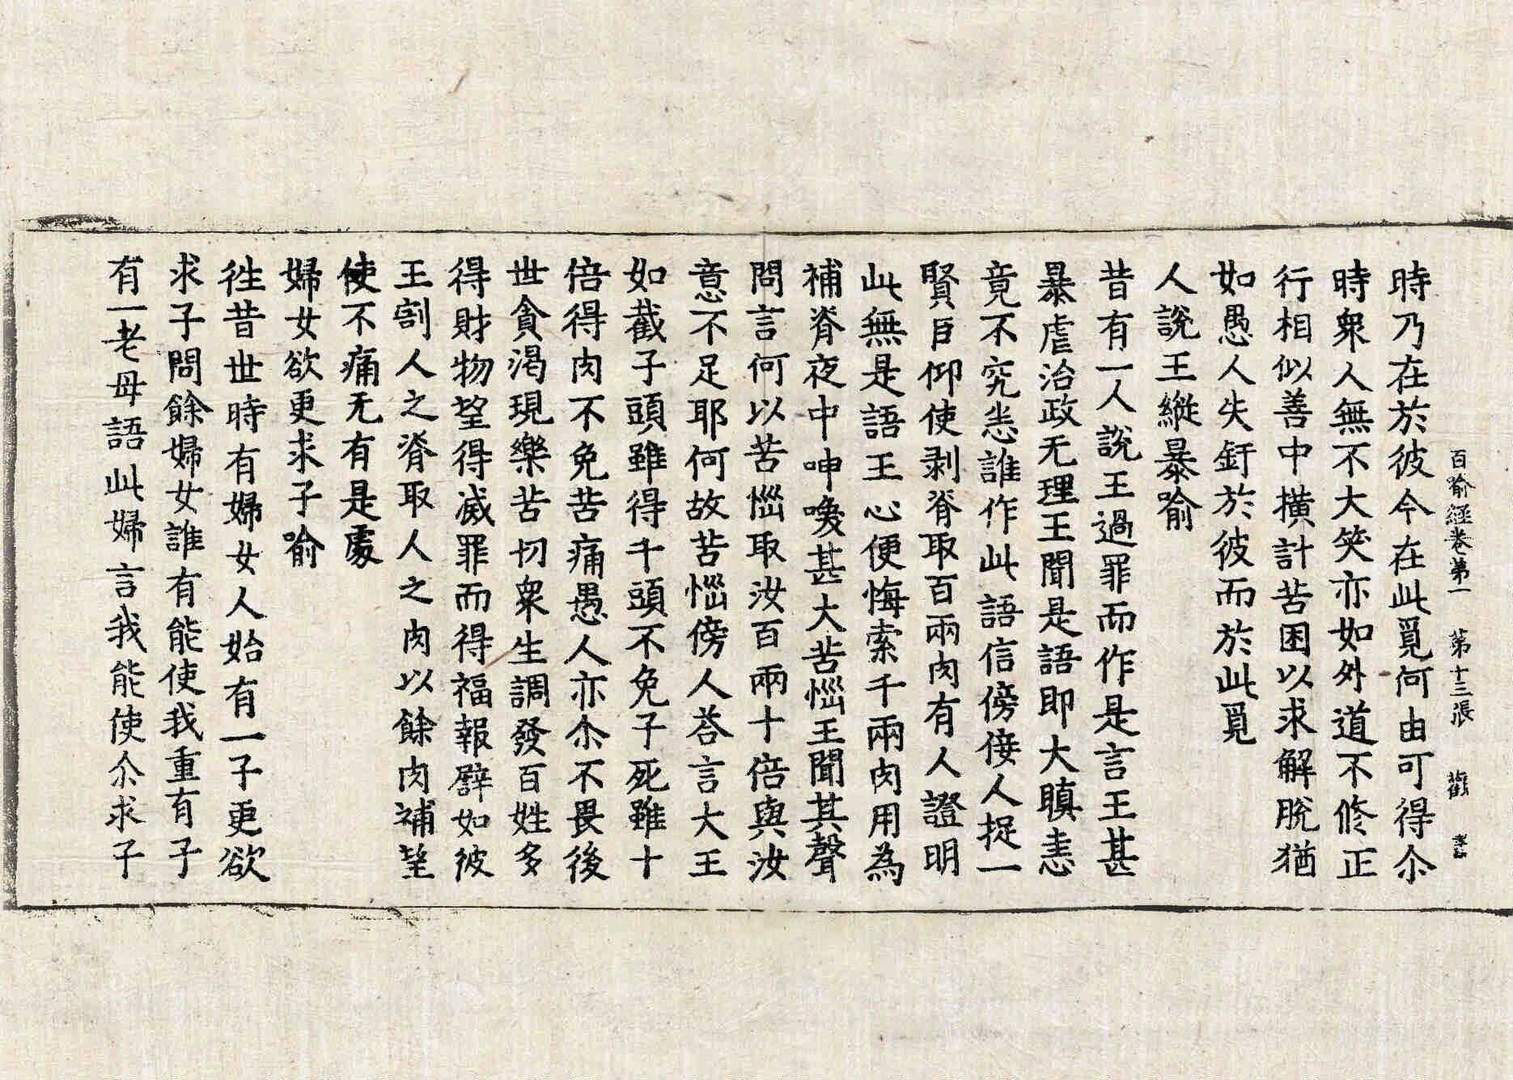 百喻經卷第一 第十三張 觀
時乃在於彼今在此覓何由可得尒
時衆人無不大笑亦如外道不修正
行相似善中橫計苦困以求解脫猶
如愚人失釪於彼而於此覓
人說王縱暴喻
昔有一人說王過罪而作是言王甚
暴虐治政无理王聞是語即大瞋恚
竟不究悉誰作此語信傍佞人捉一
賢臣仰使剥脊取百兩肉有人證明
此無是語王心便悔索千兩肉用為
補脊夜中呻喚甚大苦惱王聞其聲
問言何以苦惱取汝百兩十倍與汝
意不足耶何故苦惱傍人荅言大王
如截子頭雖得千頭不免子死雖十
倍得肉不免苦痛愚人亦尒不畏後
世貪渴現樂苦切衆生調發百姓多
得財物望得滅罪而得福報譬如彼
王割人之脊取人之肉以餘肉補望
使不痛无有是處
婦女欲更求子喻
徃昔世時有婦女人始有一子更欲
求子問餘婦女誰有能使我重有子
有一老母語此婦言我能使尒求子